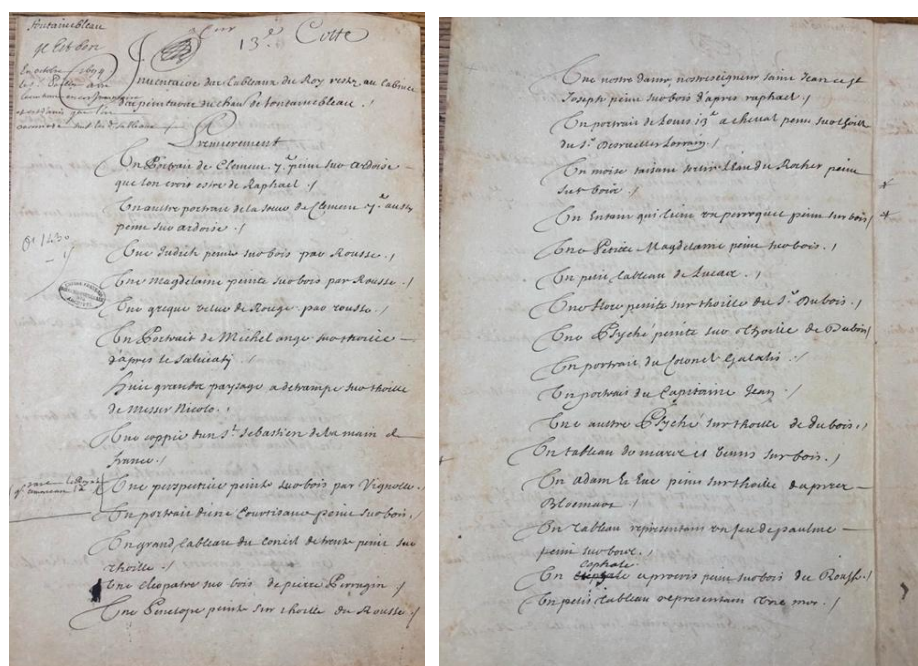 fontainebleau
13e Cotte
En octobre 1694
Inventaire des tableaux du Roy restez au cabinet
des peintures du chau de fontainebleau ./
Premierement
Un Portrait de Clement 7e peint sur ardoise
que l'on croit estre de Raphael ./
Un autre portrait de la soeur de Clement 7e aussy
peint sur ardoise ./
Une Judith peinte sur bois par Rousse ./
Une magdelaine peinte sur bois par Rousse ./
Une greque vetue de Rouge par rousse ./
Un Portrait de Michel ange sur thoille
d'apres le salviatj ./
huit grands paysage a detrampe sur thoille
de Messer Nicolo ./
Une coppie d'un St. Sebastien de la main de
france ./
Une perspective peinte sur bois par Vignolle
Un portrait d'une Courtisanne peint sur bois ./
Un grand tableau du concil de trente peint sur
thoille ./
Une cleopatre sur bois de pierre Perrugin ./
Une Penelope peinte sur thoille du Rousse ./
Une nostre dame, nostre seigneur saint Jean et st
Joseph peint sur bois d'apres raphael ./
Un portrait de Louis 13e a cheval peint sur thoille
du Sr. Desruelles Lorrain ./
Un moise faisant sortir l'eau du Rocher peint
sur bois ./
Un Enfant qui tient un perroquet peint sur bois /
Une Petite Magdelaine peint sur bois ./
Un petit tableau de Lucas ./
Une flore peinte sur thoille du Sr. Dubois ./
Une Psyché peinte sur thoille de Dubois /
Un portrait du Colonel Galatis ./
Un portrait du Capitaine Jean ./
Une autre Psyché sur thoille de dubois ./
Un tableau de marce et venus sur bois ./
Un adam et Eve peint sur thoille d'apres
Bloemare ./
Un tableau representant un jeu de paulme
peint sur bois ./
Cephale
Un et procris peint sur bois du Rousse ./
Un petit tableau representant Une mer ./